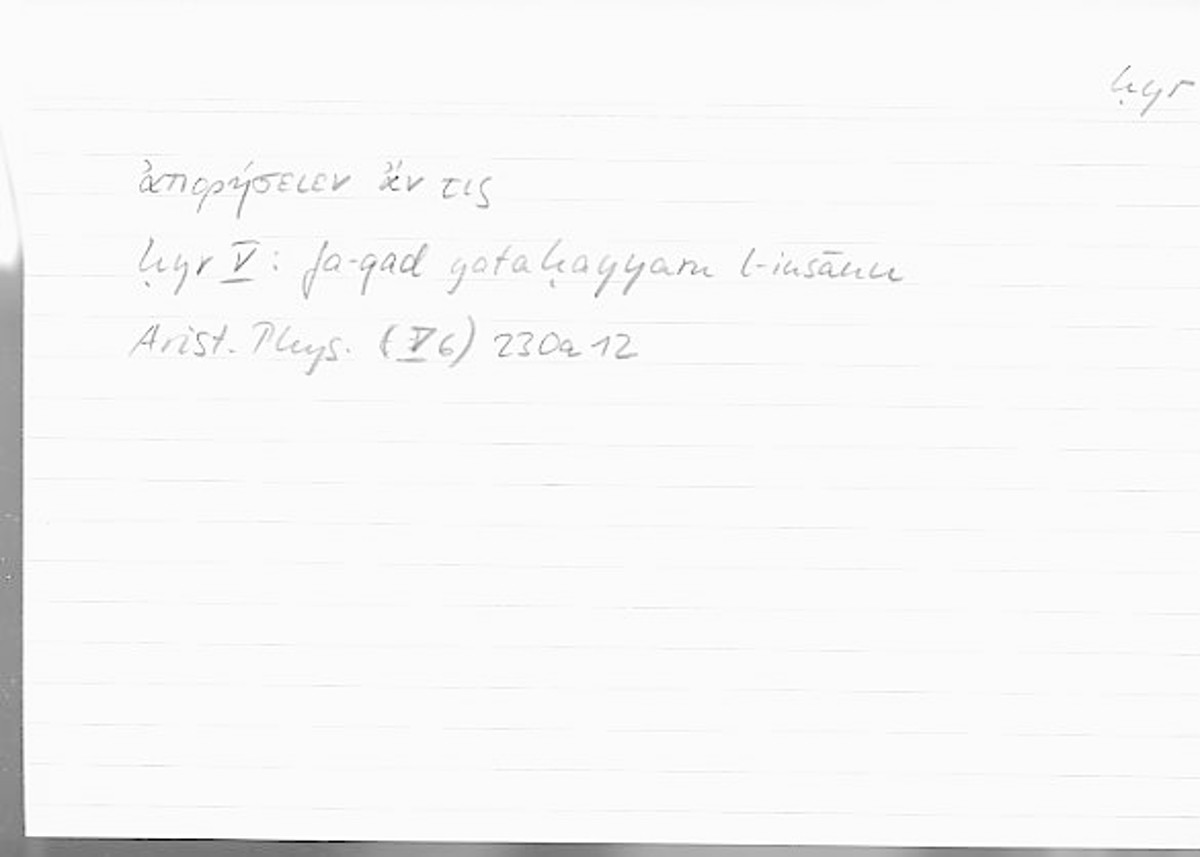 ḥyr
ἀπορήσειεν ἄν τις
ḥyr V: fa-qad yataḥayyaru l-insānu
Arist. Phys. (V 6) 230a12